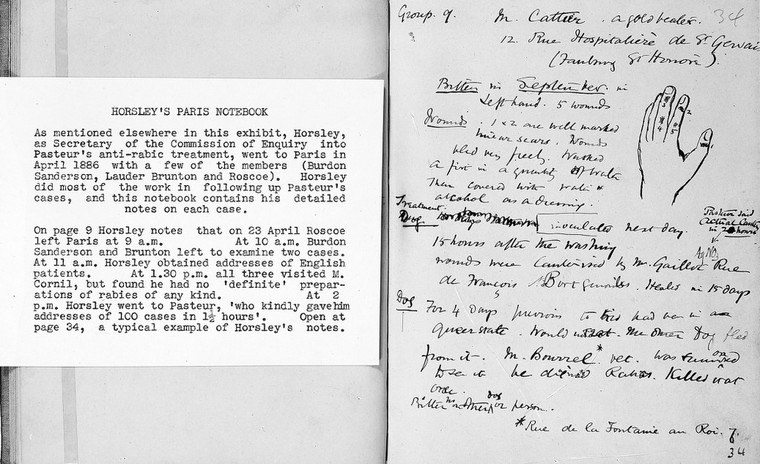 HORSLEY'S PARIS NOTEBOOK
As mentioned elsewhere in this exhibit, Horsley,
as Secretary of the Commission of Enquiry into
Pasteur's anti-rabic treatment, went to Paris in
April 1886 with a few of the members (Burdon
Sanderson, Lauder Brunton and Roscoe). Horsley
did most of the work in following up Pasteur's
cases, and this notebook contains his detailed
notes on each case.
On page 9 Horsley notes that on 23 April Roscoe
left Paris at 9 a.m. At 10 a.m. Burdon
Sanderson and Brunton left to examine two cases.
At 11 a.m. Horsley obtained addresses of English
patients. At 1.30 p.m. all three visited M.
Cornil, but found he had no 'definite' prepar-
ations of rabies of any kind. At 2
p.m. Horsley went to Pasteur, 'who kindly gave him
addresses of 100 cases in 1½ hours'. Open at
page 34, a typical example of Horsley's notes.
Group 9. M. Cattier. a goldbeater. 34
12. Rue Hospitalière de St Gervais
(Faubourg St Honoré).
Bitten in September. in
Left hand. 5 wounds
Wounds. 1 & 2 are well marked
linear scars. Wounds
bled very freely. Washed
in a quantity of water
Then covered with
alcohol as a dressing.
Treatment.
inoculated next day
Pasteur said
Actual Cautery
in 2 hours
AgNO3
15 hours after the washing
wounds were cauterised by M. Gaillot Rue
de François Healed in 15 days
Dog For 4 Days previous to had been in a
queer state. Would Dog fled
from it. M. Bourrel* vet. was
to see it he Rabies. Killed it at
once.
Bitten no other dog or person.
*Rue de la Fontaine au Roi. 7.
34